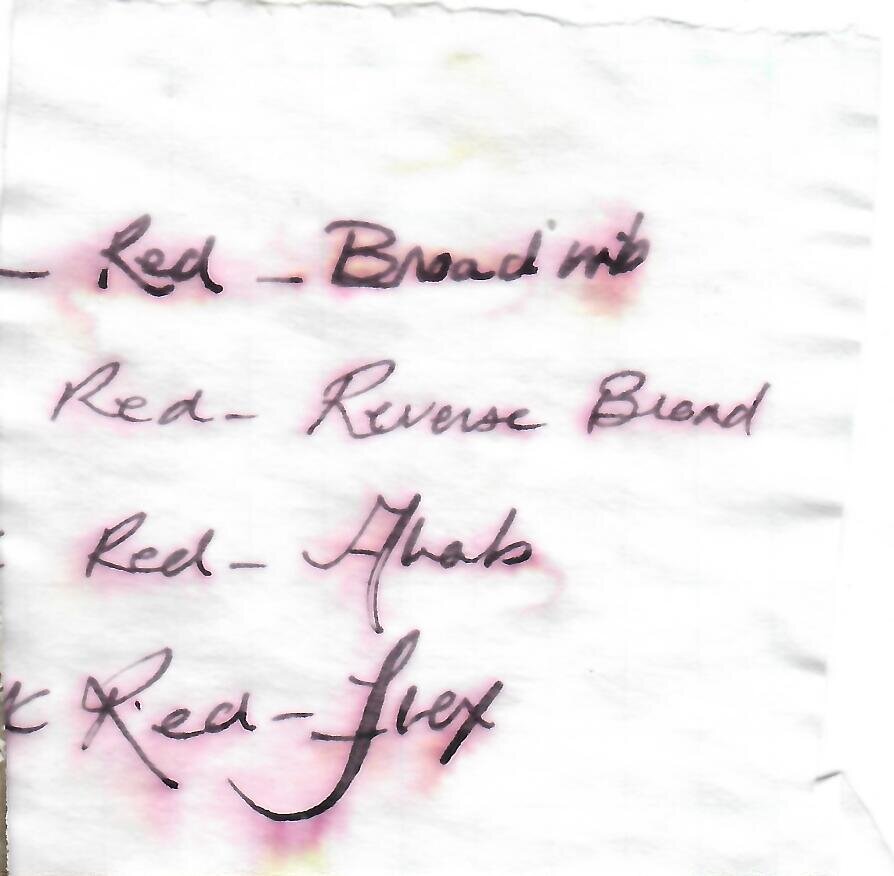 — Red – Broad nib
Red – Reverse Broad
Red – Ahab
Red – Flex